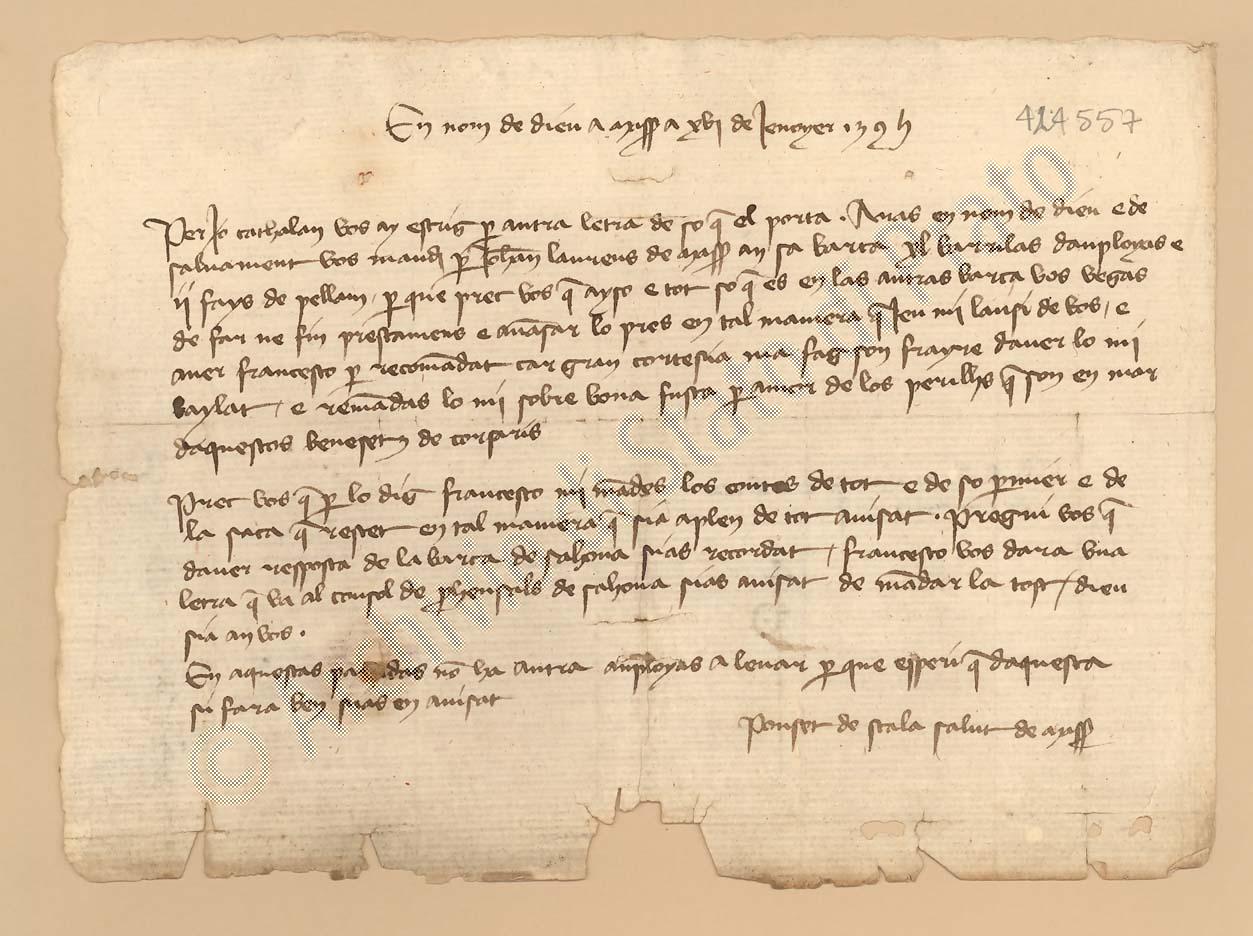 En nom de dieu a a xvi de Jenoyer 139
424557
Per Jo cathalan vos ay escrig p autra letra de so q el porta . Aras en nom de dieu e de
saluament vos mand p Johan laurens de an sa barca xl barrilas danployas e
ii fays de pellam , p que prec vos q ayso e tot so q es en las autras barca vos vegas
de far ne fin prestamens e auāsar lo pres en tal maniera q Jeu mi lausi de vos / e
auer francesco p recomādat car gran cortesia ma fag son frayre dauer lo mi
baylat / e remādas lo mi sobre bona fusta p amor de los perilhs q son en mar
daquestos de corsaris
Prec vos q p lo dig francesco mi mādes los contes de tot e de so e de
la saca q restet en tal maniera q sia aplen de tot auisat . Pregui vos q
dauer resposta de la barca de sahona sias recordat / francesco vos dara vna
letra q va al consol de de sahona sias auisat de mādar la tost / dieu
sia an vos .
En aquestas nō ha autra anployas a leuar p que esperi q daquesta
si fara ben sias en auisat
Ponset de scala salut de
© Archivio di Stato di Prato